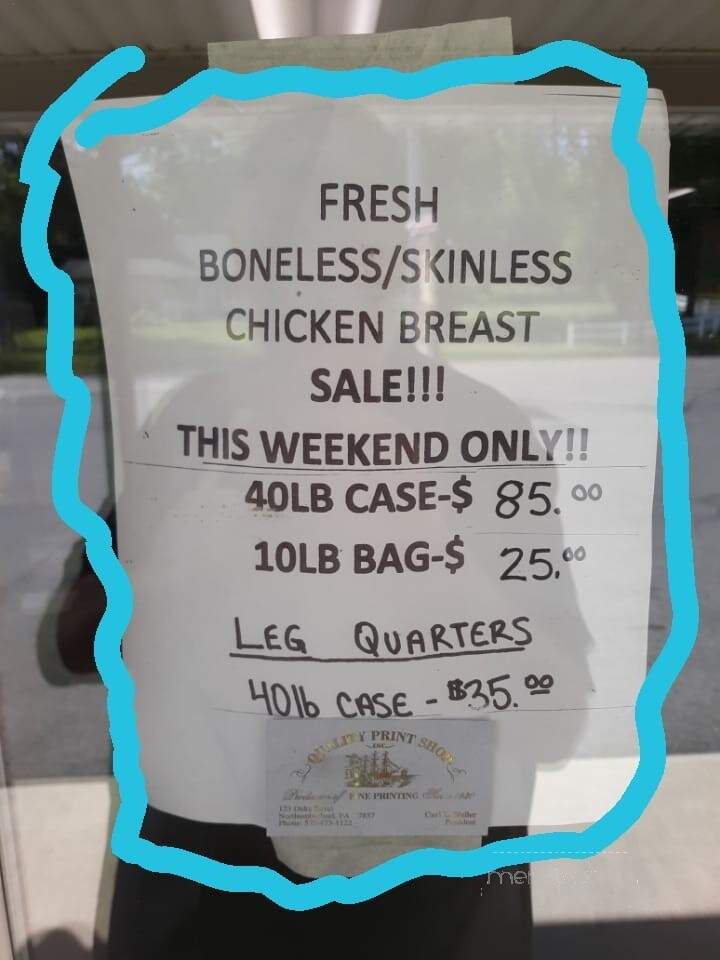 FRESH
BONELESS/SKINLESS
CHICKEN BREAST
SALE!!!
THIS WEEKEND ONLY!!
40LB CASE-$ 85.00
10LB BAG-$ 25.00
LEG QUARTERS
40lb CASE - $35.00
QUALITY PRINT SHOP
INC.
FINE PRINTING
PA
Phone
President